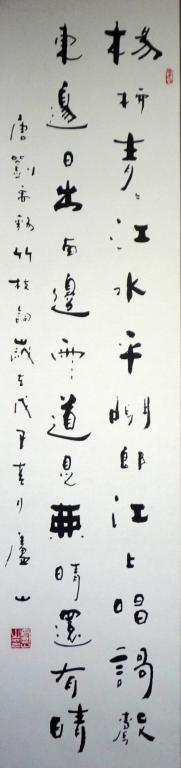 楊柳青〻江水平聞郎江上唱謌聲
東邊日出西邊雨道是無晴還有晴
唐劉禹錫竹枝詞歲在戊子春月廬山